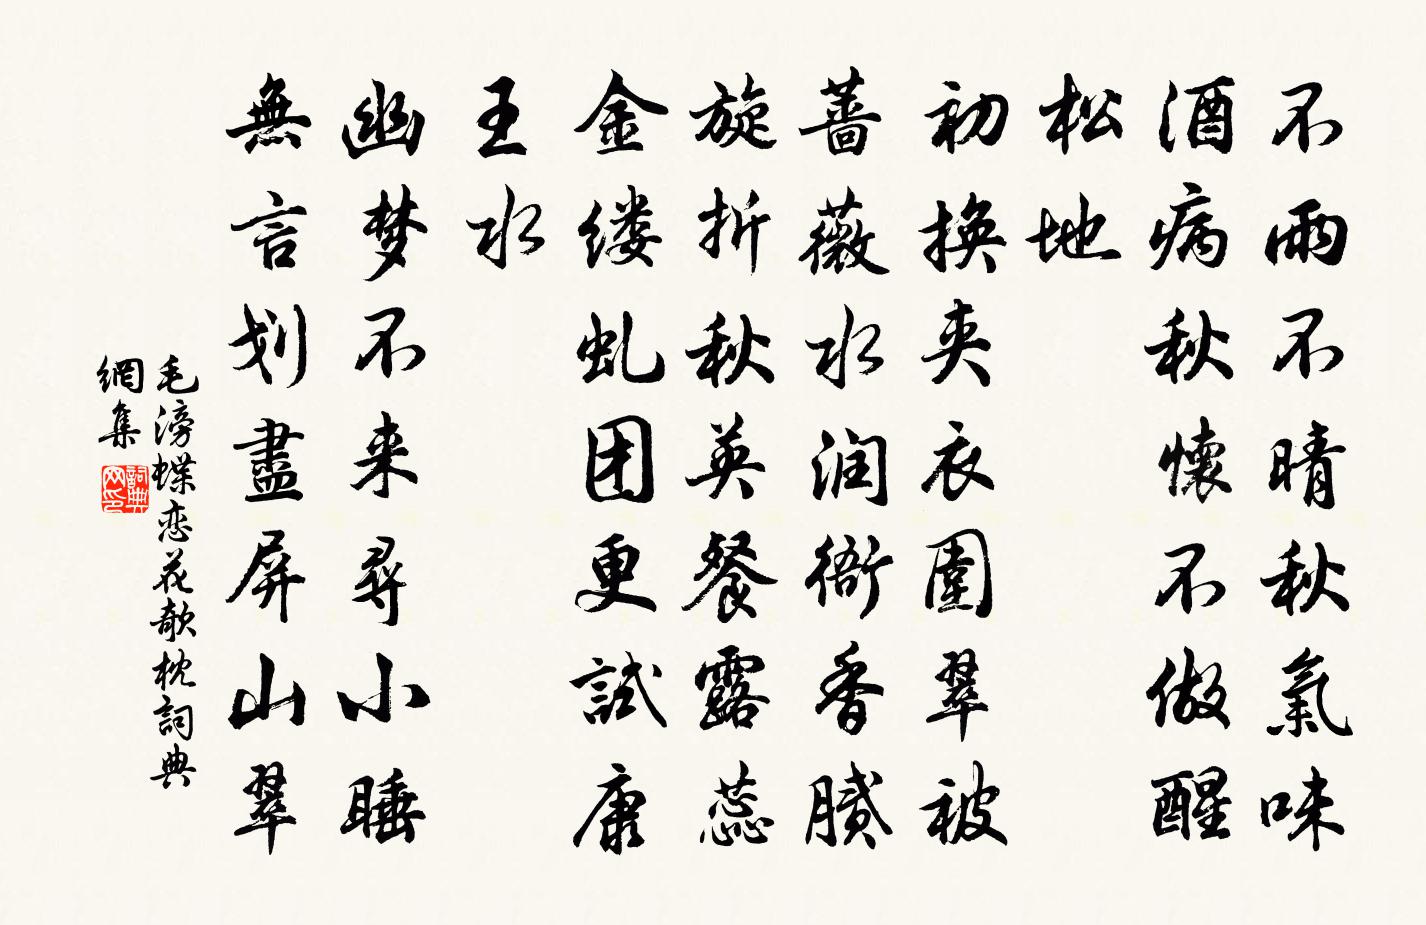 不雨不晴秋氣味
酒病秋懷不做醒
松地
初換夾衣圍翠被
蔷薇水润衙香腻
旋折秋英餐露蕊
金缕虬团更試康
王水
幽梦不来尋小睡
無言划盡屏山翠
毛滂蝶恋花欹枕詞典
網集
詞典
网印